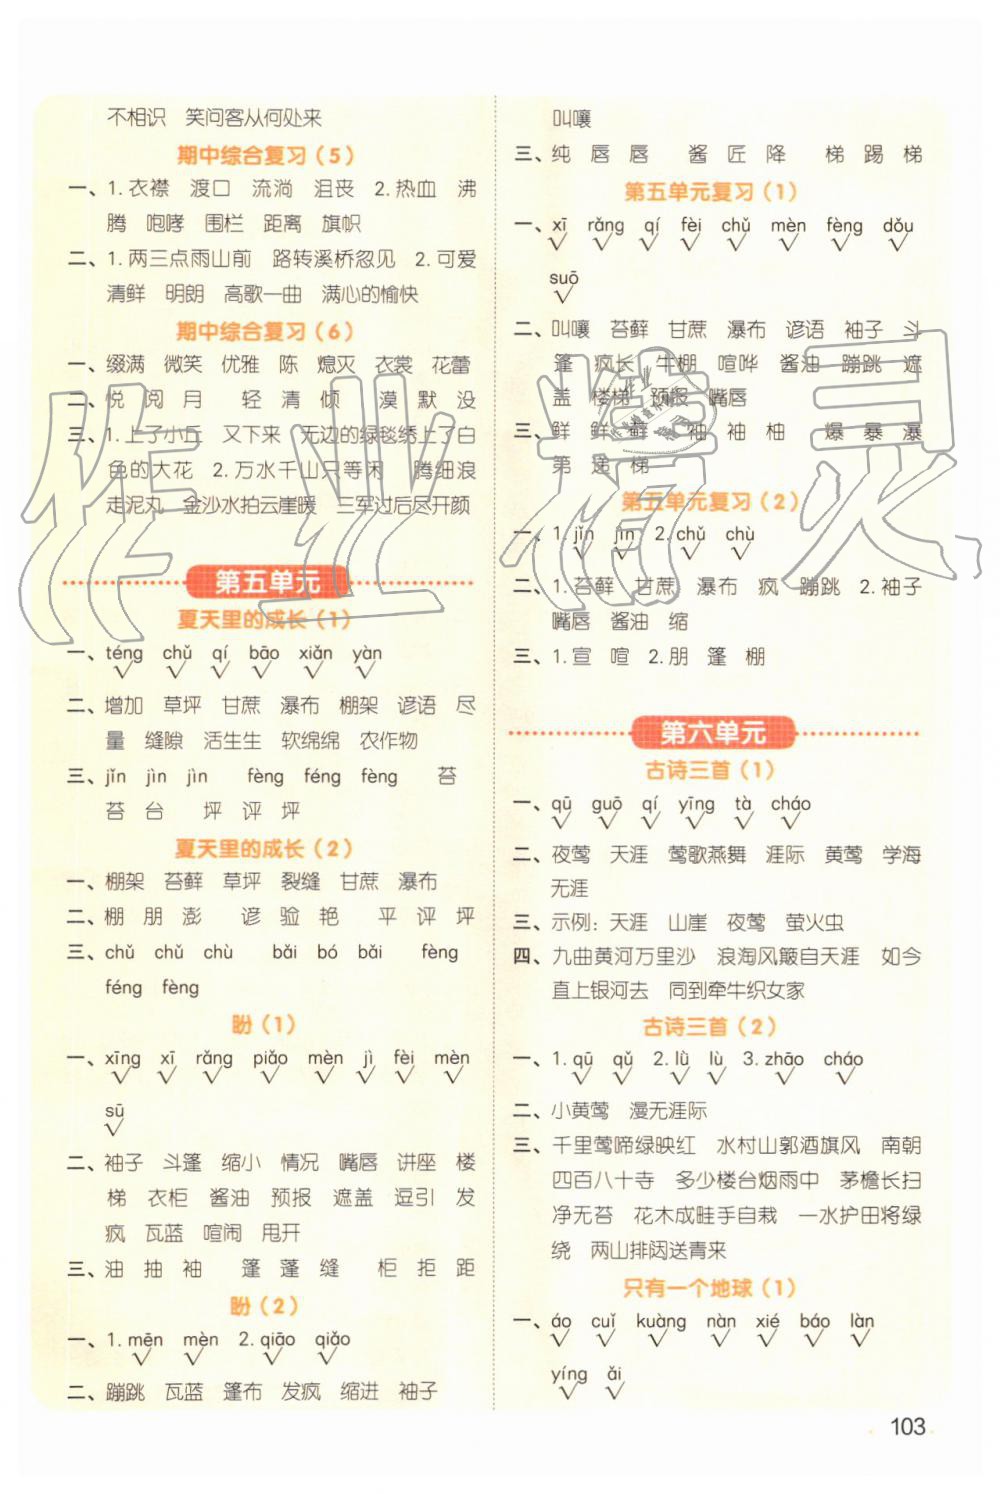 不相识 笑问客从何处来
期中综合复习(5)
一、1.衣襟 渡口 流淌 沮丧 2.热血 沸
腾 咆哮 围栏 距离 旗帜
二、1.两三点雨山前 路转溪桥忽见 2.可爱
清鲜 明朗 高歌一曲 满心的愉快
期中综合复习(6)
一、缀满 微笑 优雅 陈 熄灭 衣裳 花蕾
二、悦 阅 月 轻 清 倾 漠 默 没
三、1.上了小丘 又下来 无边的绿毯绣上了白
色的大花 2.万水千山只等闲 腾细浪
走泥丸 金沙水拍云崖暖 三军过后尽开颜
第五单元
夏天里的成长(1)
一、téng chǔ qí bāo xiǎn yàn
二、增加 草坪 甘蔗 瀑布 棚架 谚语 尽
量 缝隙 活生生 软绵绵 农作物
三、jǐn jìn jìn fèng féng fèng 苔
苔 台 坪 评 坪
夏天里的成长(2)
一、棚架 苔藓 草坪 裂缝 甘蔗 瀑布
二、棚 朋 澎 谚 验 艳 平 评 坪
三、chǔ chǔ chù bǎi bó bǎi fèng
féng fèng
盼(1)
一、xīng xī rǎng piǎo mèn jì fèi mèn
sū
二、袖子 斗篷 缩小 情况 嘴唇 讲座 楼
梯 衣柜 酱油 预报 遮盖 逗引 发
疯 瓦蓝 喧闹 甩开
三、油 抽 袖 篷 蓬 缝 柜 拒 距
盼(2)
一、1.mēn mèn 2.qiāo qiǎo
二、蹦跳 瓦蓝 篷布 发疯 缩进 袖子
叫嚷
三、纯 唇 唇 酱 匠 降 梯 踢 梯
第五单元复习(1)
一、xī rǎng qí fèi chǔ mèn fèng dǒu
suō
二、叫嚷 苔藓 甘蔗 瀑布 谚语 袖子 斗
篷 疯长 牛棚 喧哗 酱油 蹦跳 遮
盖 楼梯 预报 嘴唇
三、鲜 鲜 藓 袖 袖 柚 爆 暴 瀑
第 递 梯
第五单元复习(2)
一、1.jǐn jìn 2.chǔ chù
二、1.苔藓 甘蔗 瀑布 疯 蹦跳 2.袖子
嘴唇 酱油 缩
三、1.宣 喧 2.朋 篷 棚
第六单元
古诗三首(1)
一、qū guō qí yīng tà cháo
二、夜莺 天涯 莺歌燕舞 涯际 黄莺 学海
无涯
三、示例：天涯 山崖 夜莺 萤火虫
四、九曲黄河万里沙 浪淘风簸自天涯 如今
直上银河去 同到牵牛织女家
古诗三首(2)
一、1.qū qǔ 2.lǜ lù 3.zhāo cháo
二、小黄莺 漫无涯际
三、千里莺啼绿映红 水村山郭酒旗风 南朝
四百八十寺 多少楼台烟雨中 茅檐长扫
净无苔 花木成畦手自栽 一水护田将绿
绕 两山排闼送青来
只有一个地球(1)
一、áo cuǐ kuàng nàn xié báo làn
yíng ǎi
103
作业精灵